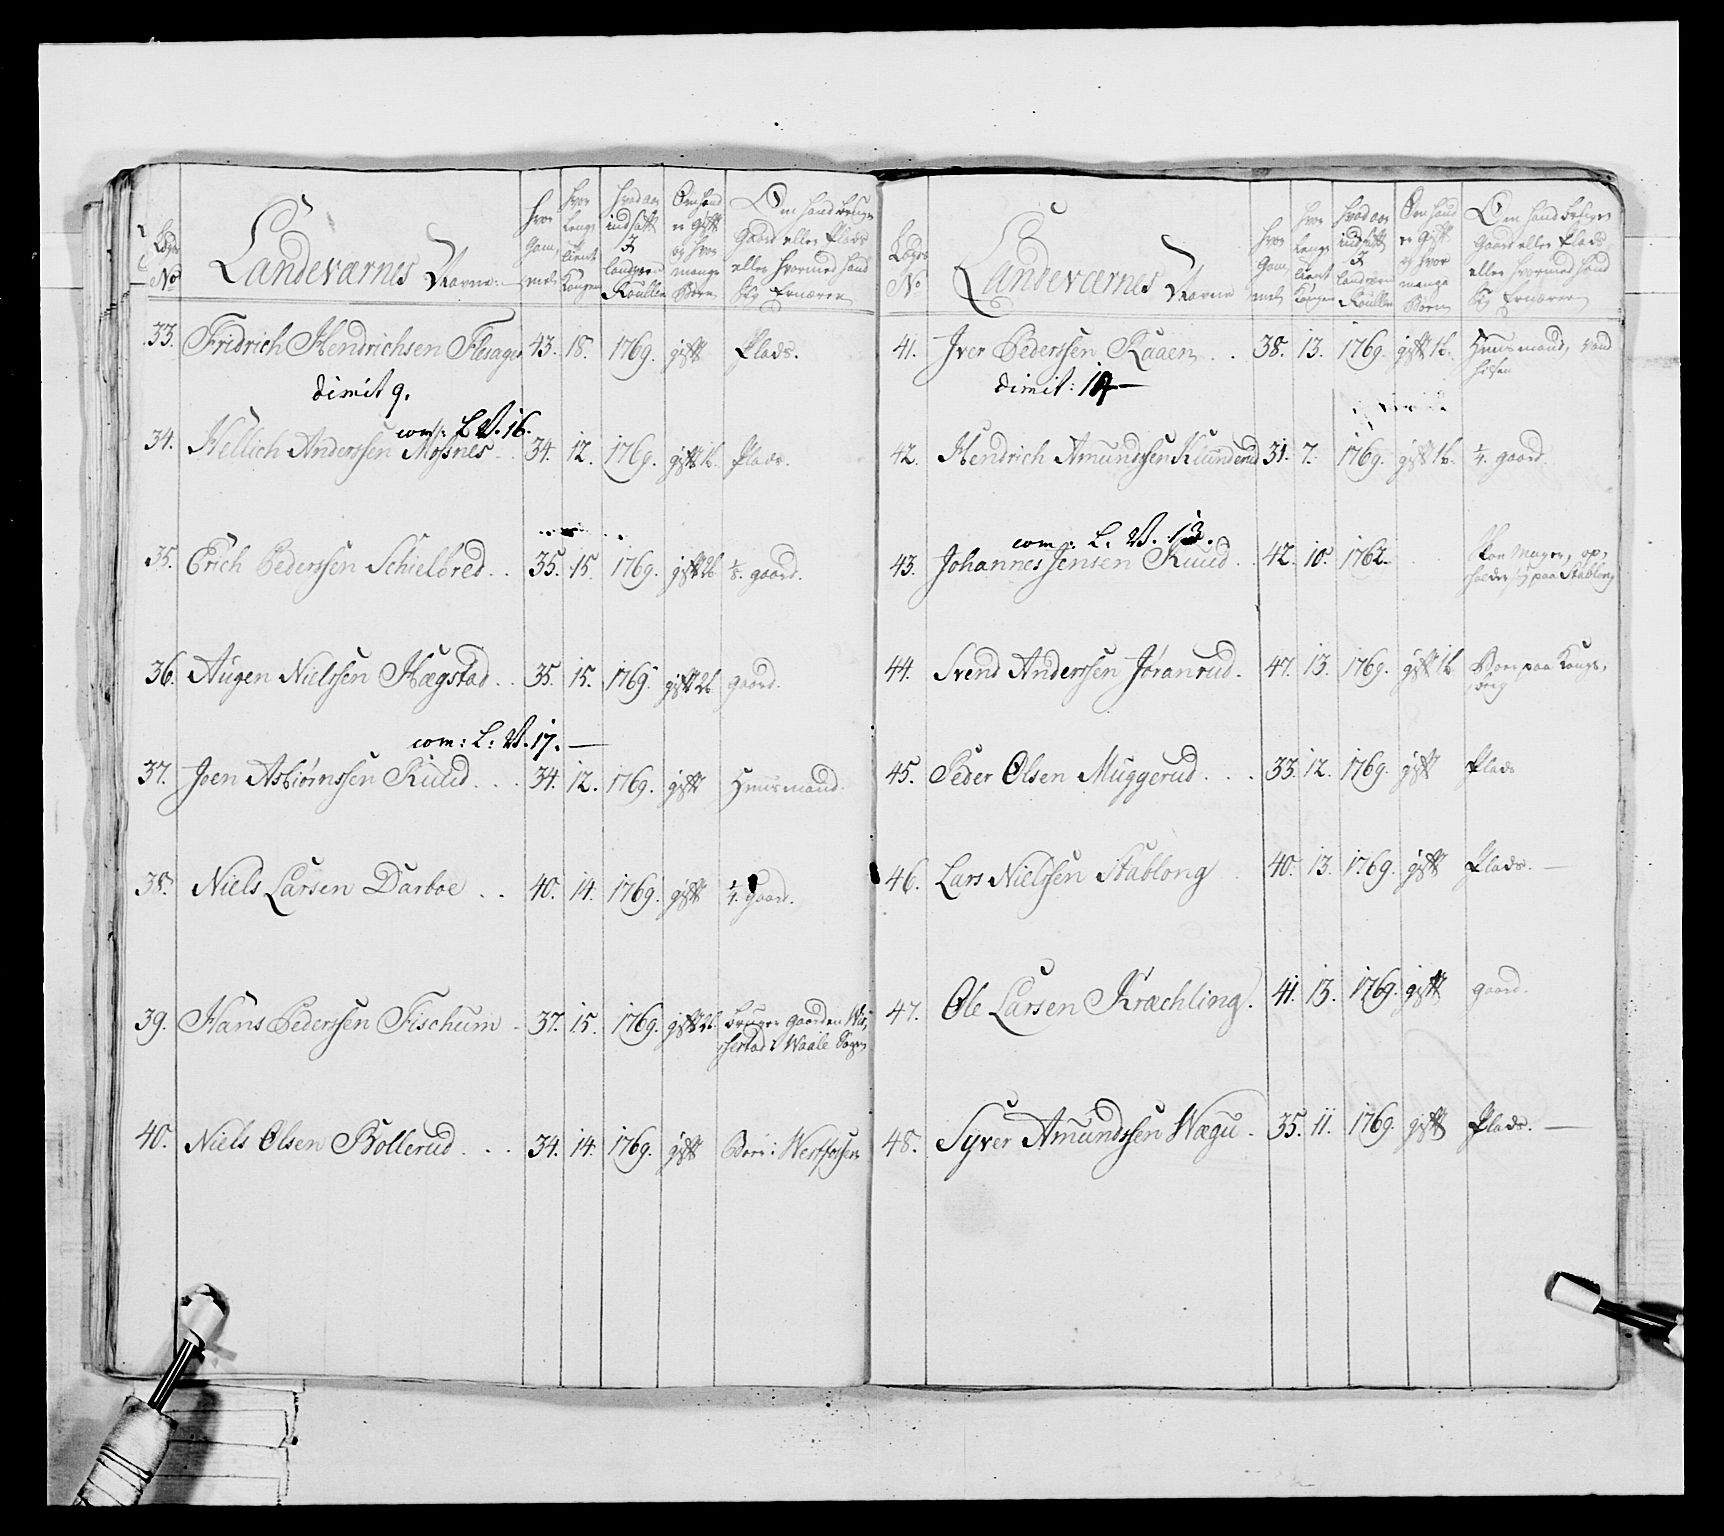 Lægs No
Landeværnes Navne
hvor Gam, mel
hvor lenge tient Kongen
hvad aar indsatt I landværn Roullen
Om hand er gift og hvor mange Børn
Om hand bruger Gaard eller Plads eller hvormed hand sig Ernærer
33. Fridrich Hendrichsen Flesager 43. 18. 1769. gift Plads.
dimit 9.
com: L. V. 16.
34. Hellich Anderssen Mosnes 34. 12. 1769. gift 1b. Plads.
35. Erich Pederssen Schielbred 35. 15. 1769. gift 2b. 1/8. gaard.
36. Augen Nielssen Hægstad 35. 15. 1769. gift 2b. gaard.
com: L: V. 17. —
37. Joen Asbiørnssen Ruud 34. 12. 1769. gift Huusmand.
38. Niels Larsen Darboe 40. 14. 1769. gift 1/4. gaard.
39. Hans Pederssen Fischum 37. 15. 1769. gift 2b. bruger gaarden
i Waale Sogn
40. Niels Olsen Bollerud 34. 14. 1769. gift Boer i Westfossen
Lægs No
Landeværnes Navne
hvor Gam, mel
hvor lenge tient Kongen
hvad aar indsatt I landværn Roullen
Om hand er gift og hvor mange Børn
Om hand bruger Gaard eller Plads eller hvormed hand sig Ernærer
41. Iver Pederssen Kaaen 38. 13. 1769. gift 1b. Huusmand,
dimit: 10 —
42. Hendrich Amundssen Klunderud 31. 7. 1769. gift 1b. 1/4. gaard.
com: L. V. 13.
43. Johannes Jensen Ruud 42. 10. 1762. Skoe Mager, op,
holder sig paa Stablong
44. Svend Anderssen Jøranrud. 47. 13. 1769. gift 1b. Boer paa Kongs,
berg
45. Peder Olsen Muggerud 33. 12. 1769. gift Plads
46. Lars Nielssen Stablong 40. 13. 1769. gift Plads. —
47. Ole Larsen Kræchling. 41. 13. 1769. gift gaard.
48. Syver Amundssen Wægu. 35. 11. 1769. gift Plads. —